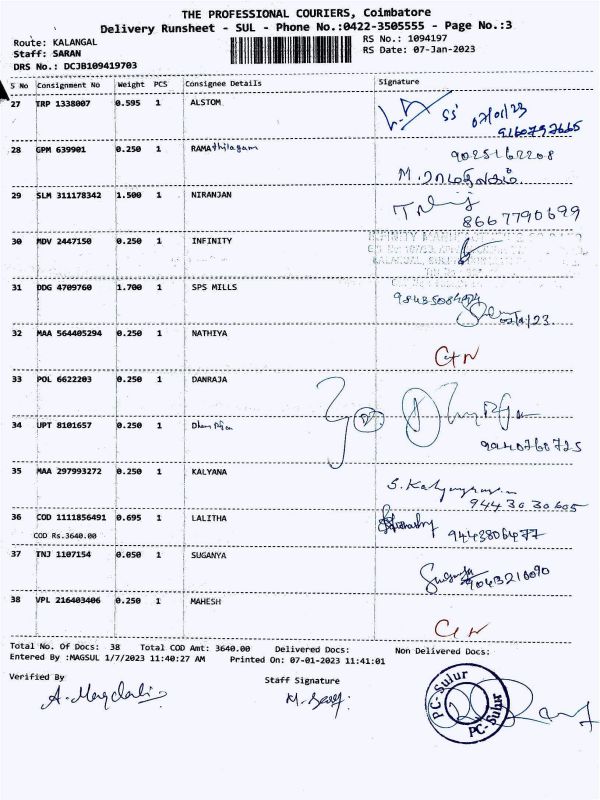 THE PROFESSIONAL COURIERS, Coimbatore
Delivery Runsheet - SUL - Phone No.:0422-3505555 - Page No.:3
Route: KALANGAL RS No.: 1094197
Staff: SARAN RS Date: 07-Jan-2023
DRS No.: DCJB109419703
S No Consignment No Weight PCS Consignee Details Signature
27 TRP 1338007 0.595 1 ALSTOM SS 07/01/23
28 GPM 639901 0.250 1 RAMAthilagam 9025162208
M. ராமதிலகம்.
29 SLM 311178342 1.500 1 NIRANJAN
8667790699
30 MDV 2447150 0.250 1 INFINITY
31 DDG 4709760 1.700 1 SPS MILLS
32 MAA 564405294 0.250 1 NATHIYA
33 POL 6622203 0.250 1 DANRAJA
34 UPT 8101657 0.250 1
9940768725
35 MAA 297993272 0.250 1 KALYANA
9443030605
36 COD 1111856491 0.695 1 LALITHA
COD Rs.3640.00 9443806477
37 TNJ 1107154 0.050 1 SUGANYA
Suganya 9043210090
38 VPL 216403406 0.250 1 MAHESH
Total No. Of Docs: 38 Total COD Amt: 3640.00 Delivered Docs: Non Delivered Docs:
Entered By :MAGSUL 1/7/2023 11:40:27 AM Printed On: 07-01-2023 11:41:01
Verified By Staff Signature
PC-Sulur
PC-Sulur